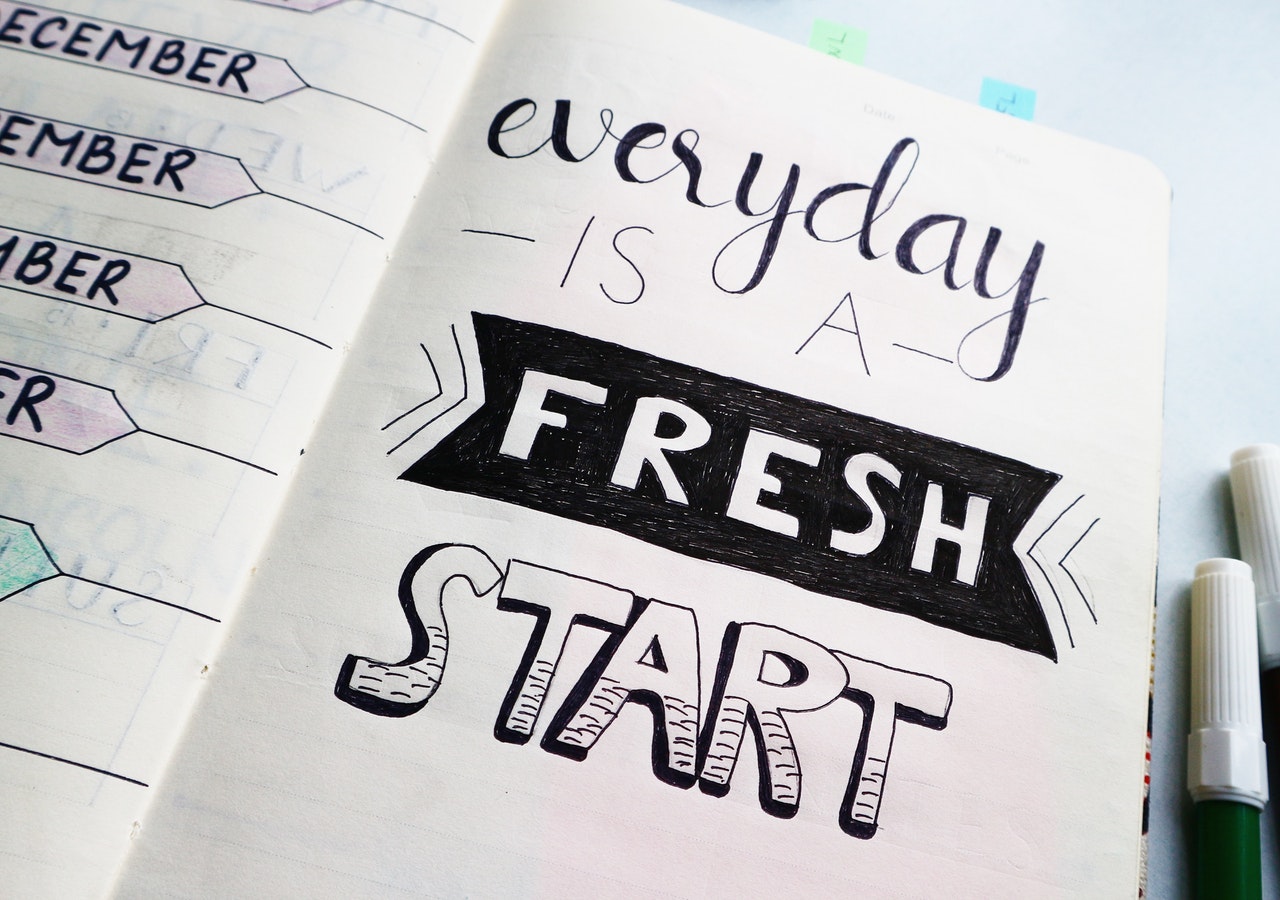 DECEMBER
EMBER
MBER
ER
Date
Page
everyday
– IS A –
FRESH
START